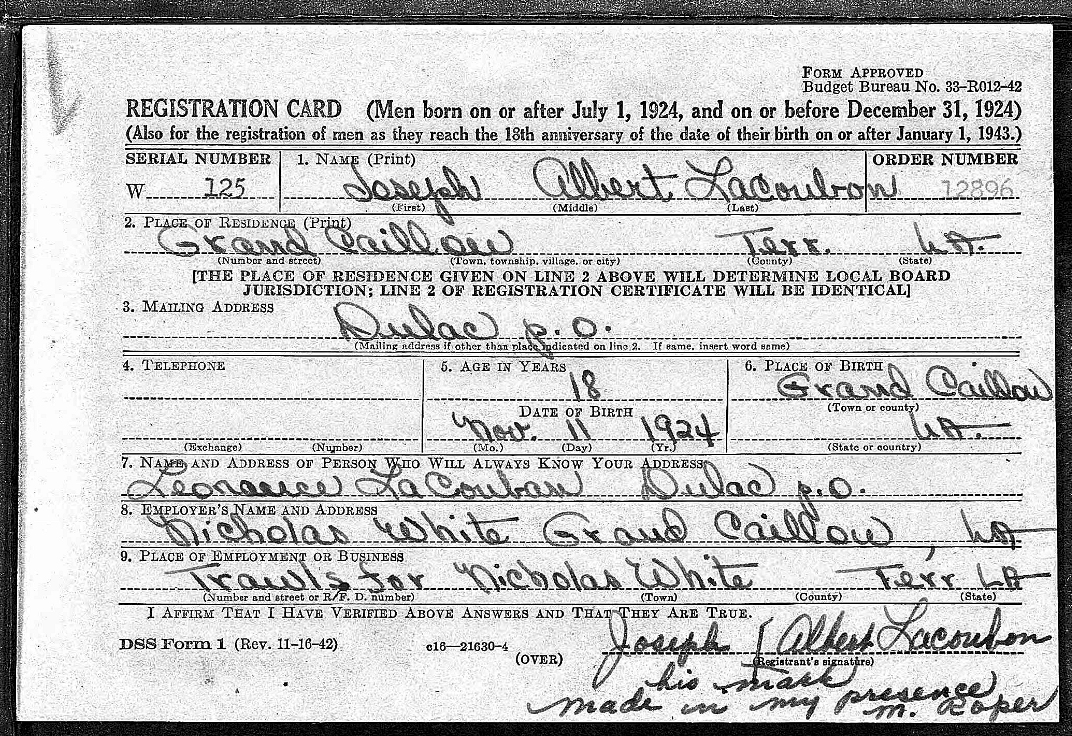 FORM APPROVED
Budget Bureau No. 33–R012–42
REGISTRATION CARD (Men born on or after July 1, 1924, and on or before December 31, 1924)
(Also for the registration of men as they reach the 18th anniversary of the date of their birth on or after January 1, 1943.)
SERIAL NUMBER 1. NAME (Print) ORDER NUMBER
W 125 Joseph Albert Lacoubon 12896
(First) (Middle) (Last)
2. PLACE OF RESIDENCE (Print)
Grand Caillou Terr. LA.
(Number and street) (Town, township, village, or city) (County) (State)
[THE PLACE OF RESIDENCE GIVEN ON LINE 2 ABOVE WILL DETERMINE LOCAL BOARD
JURISDICTION; LINE 2 OF REGISTRATION CERTIFICATE WILL BE IDENTICAL]
3. MAILING ADDRESS
Dulac p.o.
(Mailing address if other than place indicated on line 2. If same, insert word same)
4. TELEPHONE 5. AGE IN YEARS 6. PLACE OF BIRTH
18 Grand Caillou
DATE OF BIRTH (Town or county)
Nov. 11 1924 LA.
(Exchange) (Number) (Mo.) (Day) (Yr.) (State or country)
7. NAME AND ADDRESS OF PERSON WHO WILL ALWAYS KNOW YOUR ADDRESS
LaCouban Dulac p.o.
8. EMPLOYER'S NAME AND ADDRESS
Nicholas White Grand Caillou, LA
9. PLACE OF EMPLOYMENT OR BUSINESS
Trawls for Nicholas White Terr LA
(Number and street or R. F. D. number) (Town) (County) (State)
I AFFIRM THAT I HAVE VERIFIED ABOVE ANSWERS AND THAT THEY ARE TRUE.
DSS Form 1 (Rev. 11-16-42) c16—21630-4 Joseph Albert Lacoubon
(OVER) (Registrant's signature)
his mark
made in my presence
M. Roper